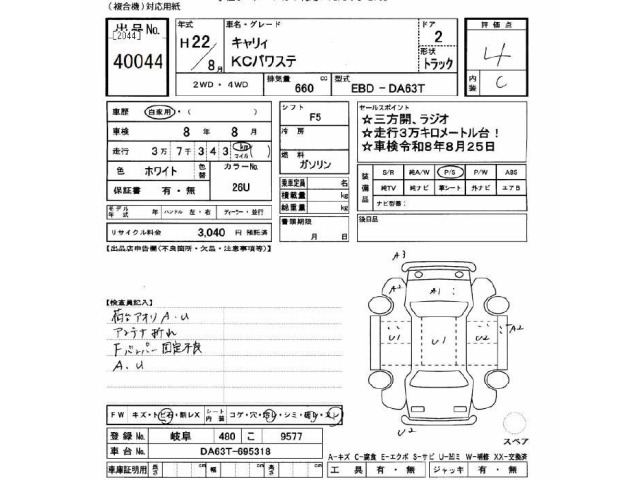 （複合機）対応用紙
出品No. 年式 車名・グレード ドア 評価点
[2044] H22/8月 キャリィ 2 4
40044 KCパワステ 形状 トラック
2WD・4WD 排気量 660 cc 型式 EBD-DA63T 内装 C
車歴 自家用・（ シフト F5 セールスポイント
車検 8年 8月 冷房 ☆三方開、ラジオ
走行 3万7千343 km マイル ☆走行3万キロメートル台！
色 ホワイト 色替 カラーNo. 26U 燃料 ガソリン ☆車検令和8年8月25日
保証書 有・無 乗車定員 名 装備品 S/R 純A/W P/S P/W ABS
積載量 kg 純TV 純ナビ 革シート 外ナビ エアB
総重量 kg ナビ型番：
モデル年式 年 ハンドル 左・右 ディーラー・並行 書類期限 月 日 後日品
リサイクル料金 3,040 円 預託済
【出品店申告欄（不良箇所・欠品・注意事項等）】
A3
A2 A1
【検査員記入】
荷台アオリ A.U
アンテナ折れ
Fバンパー固定不良
A.U
U1 U1 U2 A2
U2
スペア
FW キズ・トビ石・割レX シート内装 コゲ・穴・汚レ・シミ・破レ・スレ
登録No. 岐阜 480 こ 9577
車台No. DA63T-695318
A-キズ C-腐食 E-エクボ S-サビ U-凹ミ W-補修 XX-交換済
車庫証明用 長さ cm 幅 cm 高さ cm 工具 有・無 ジャッキ 有・無